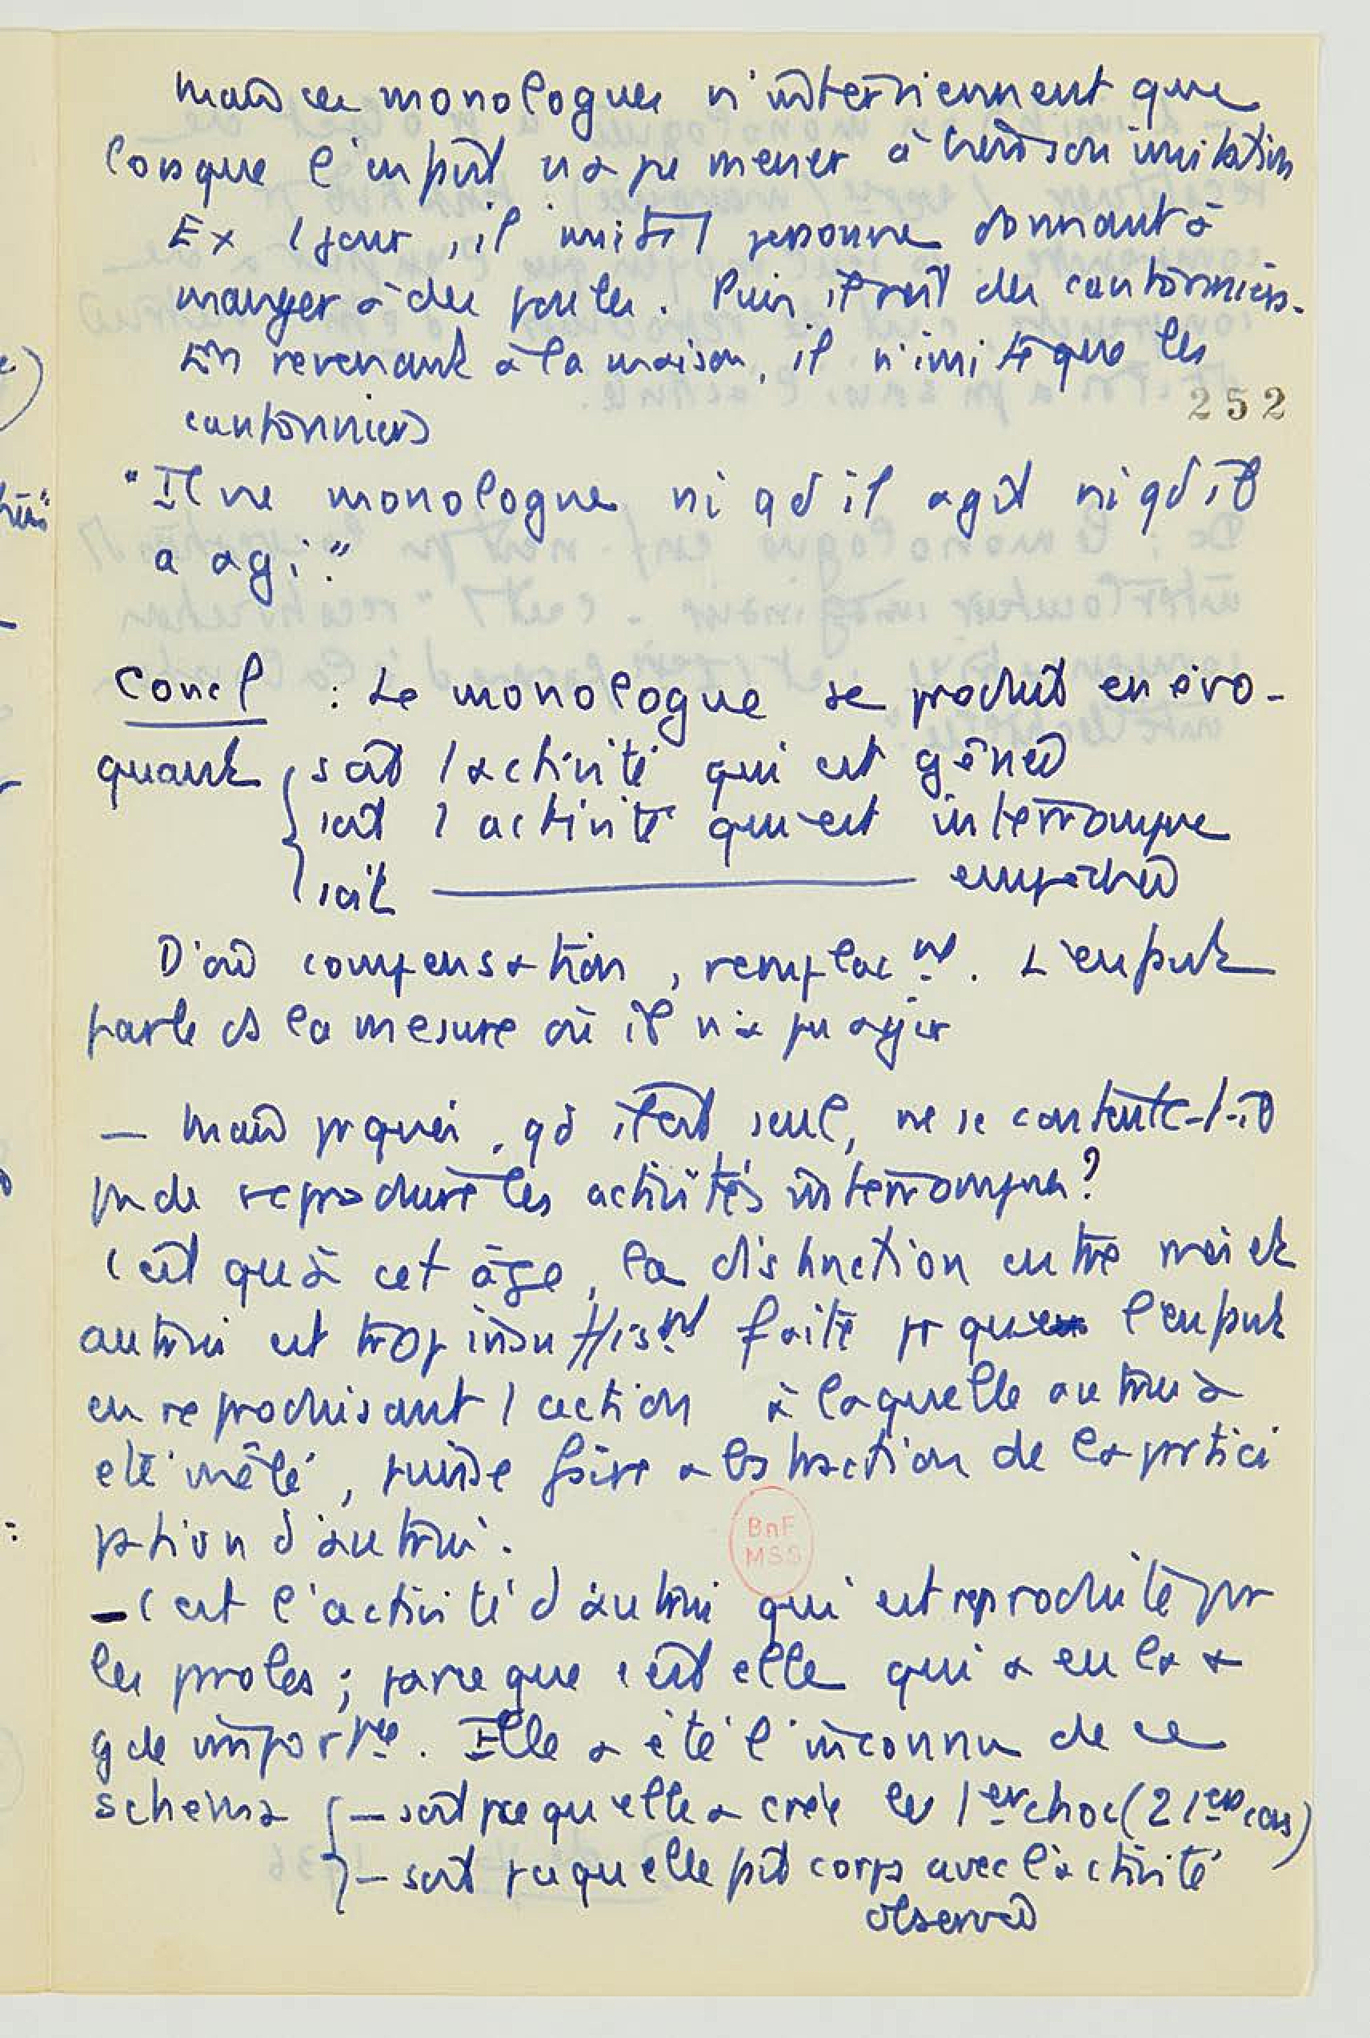 Mais ces monologues n'interviennent que
lorsque l'enfant n'a pu mener à bien son imitation
Ex 1 jour, il imite 1 personne donnant à
manger à des poules. Puis il voit des cantonniers.
En revenant à la maison, il n'imite que les
cantonniers
252
"Il ne monologue ni qd il agit ni qd il
a agi."
Concl : Le monologue se produit en évo-
quant soit 1 activité qui est gênée
soit 1 activité qui est interrompue
soit ———— empêchée
D'où compensation, remplact. L'enfant
parle ds la mesure où il n'a pu agir
— Mais pquoi, qd il est seul, ne se contente-t-il
pas de reproduire les activités interrompues?
C'est qu'à cet âge, la distinction entre moi et
autrui est trop insuffist faite pr que l'enfant
en reproduisant 1 action à laquelle autrui a
été mêlé, puisse faire abstraction de la partici
pation d'autrui.
BnF
MSS
— C'est l'activité d'autrui qui est reproduite par
les paroles; parce que c'est elle qui a eu la +
gde importce. Elle a été l'inconnu de ce
schéma — soit pce qu'elle a créé le 1er choc (2 1ers cas)
— soit pce qu'elle fait corps avec l'activité
observée